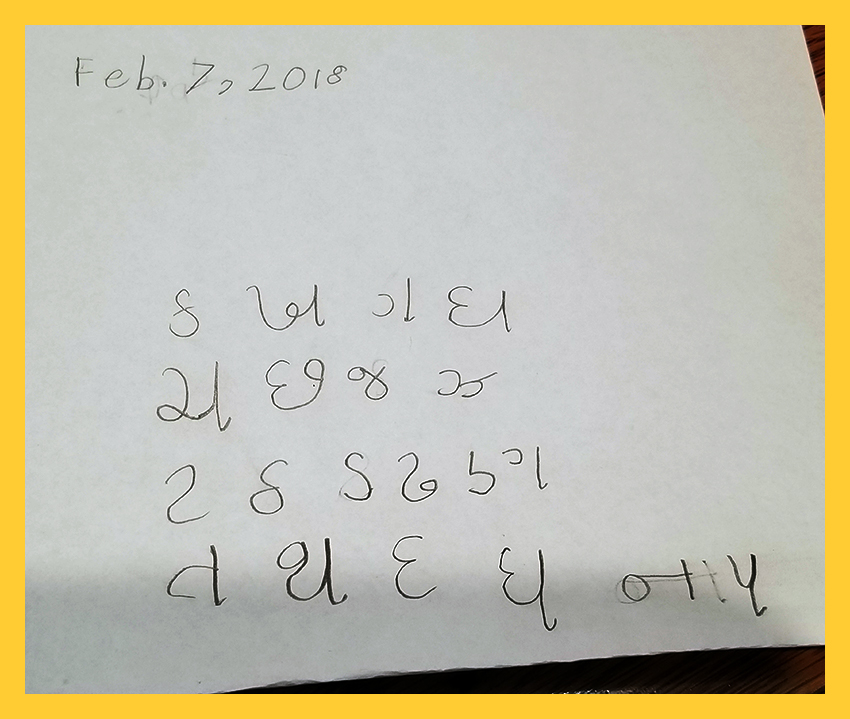 Feb. 7, 2018
ક ખ ગ ઘ
ચ છ જ ઝ
ટ ઠ ડ ઢ ણ
ત થ દ ધ ન પ